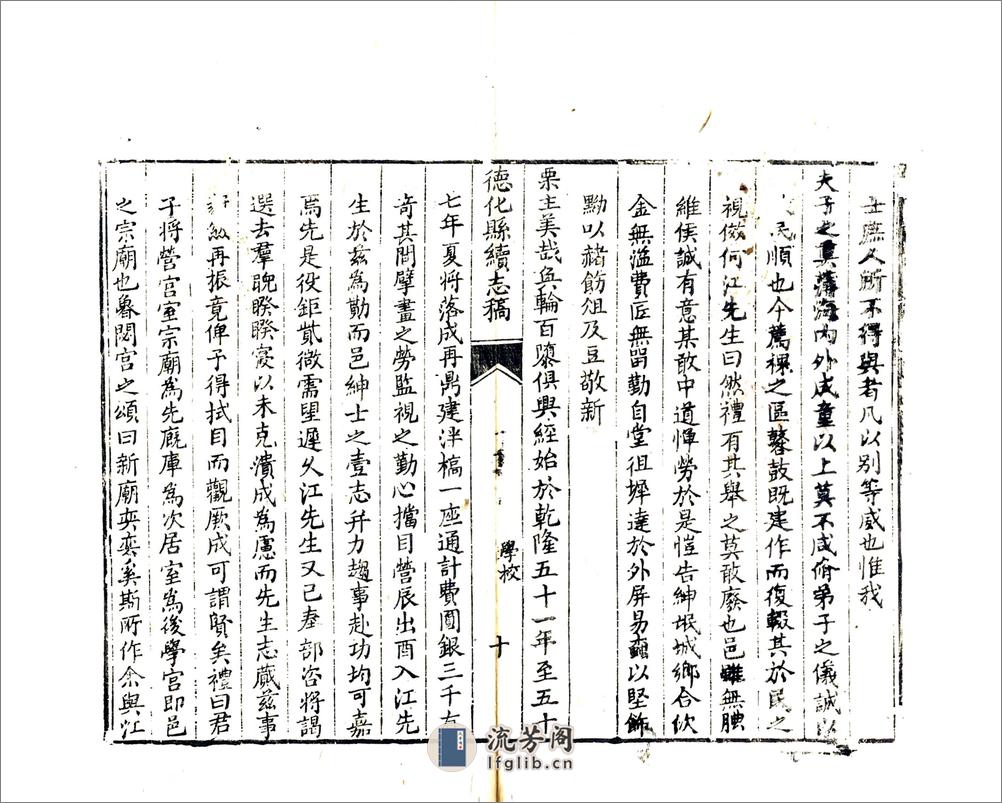 士庶人所不得與者凡以別等威也惟我
夫子之奠薄海內外成童以上莫不咸脩弟子之儀誠以
民順也今薦祼之區鼛鼓既建作而復輟其於民之
視傚何江先生曰然禮有其舉之莫敢廢也邑雖無腆
維侯誠有意某敢中道憚勞於是愷告紳氓城鄉合饮
金無溢費匠無留勤自堂徂墀達於外屏易蠹以堅飾
黝以赭飭俎及豆敬新
栗主美哉奐輪百隳俱興經始於乾隆五十一年至五十
德化縣續志稿
學校
十
七年夏將落成再鼎建泮橋一座通計費圓銀三千有
奇其間擘畫之勞監視之勤心擋目營辰出酉入江先
生於茲為勤而邑紳士之壹志并力趨事赴功均可嘉
焉先是役鉅貳微需望遲久江先生又已奉部咨將謁
選去羣睨睽睽寔以未克潰成為慮而先生志蕆茲事
敏再振竟俾予得拭目而觀厥成可謂賢矣禮曰君
子將營宫室宗廟為先廐庫為次居室為後學宫即邑
之宗廟也魯閟宫之頌曰新廟奕奕奚斯所作余與江
流芳阁
lfglib.cn